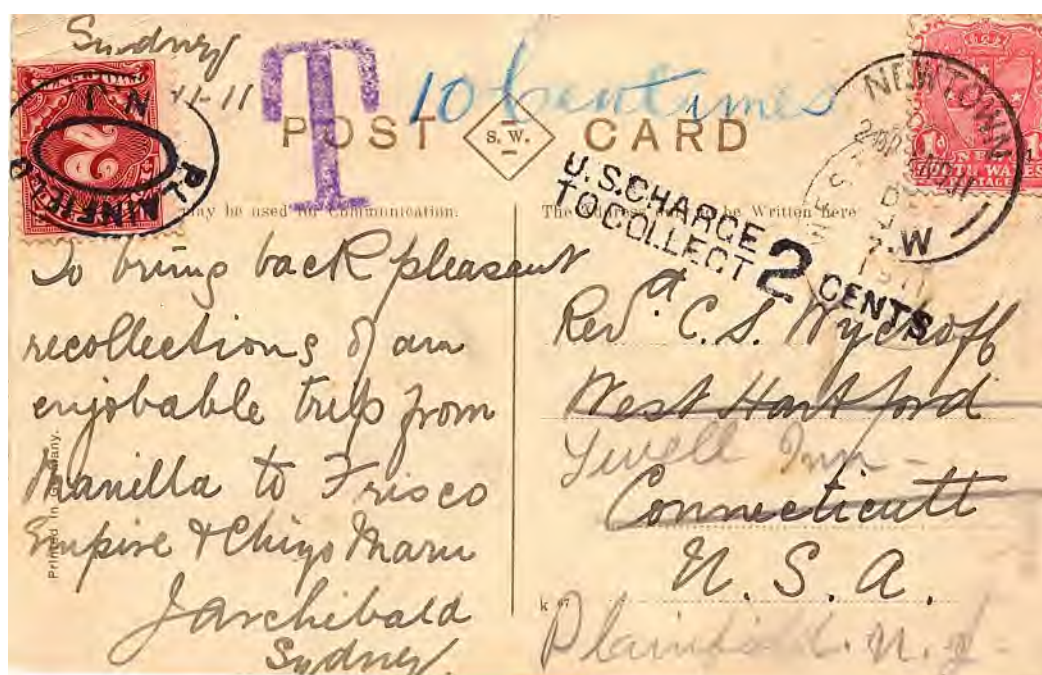 Sydney
11-11
T
10 Centimes
POST CARD
S. W.
2
PLAINFIELD
N.J.
NEWTOWN
N.S.W
1d
SOUTH WALES
POSTAGE
U.S.CHARGE
TO COLLECT 2 CENTS
may be used for Communication.
The Address to be Written here
To bring back pleasant
recollections of an
enjobable trip from
Manilla to Frisco
Empire & Chiyo Maru
J Archibald
Sydney.
Printed in Germany.
Rev.d C. S. Wyckoff
West Hartford
Connecticutt
U. S. A.
Plainfield. N. J-